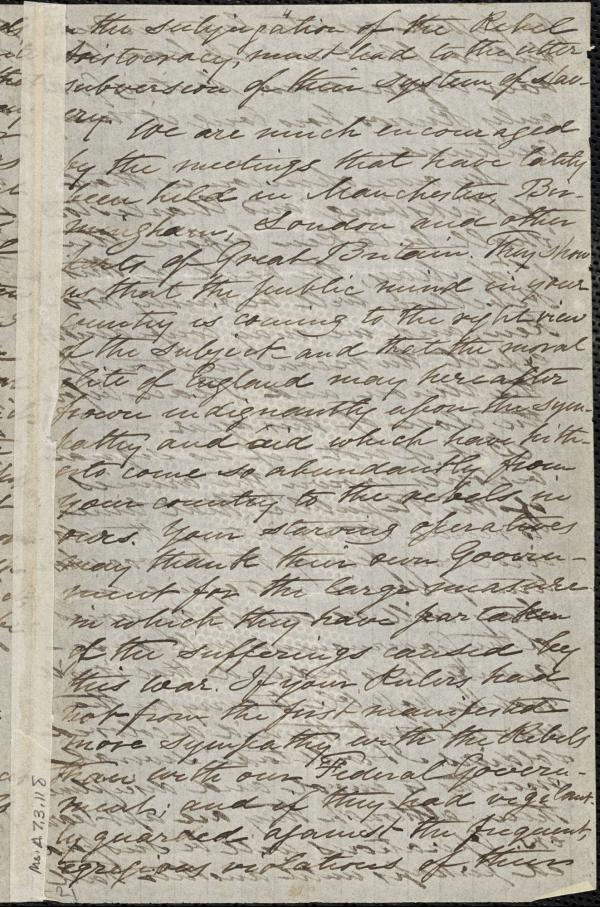 in the subjugation of the Rebel
Aristocracy, must lead to the utter
subversion of their system of slav-
ery.
We are much encouraged
by the meetings that have lately
been held in Manchester, Bir-
mingham, London and other
parts of Great Britain. They show
us that the public mind in your
country is coming to the right view
of the subject and that the moral
élite of England may hereafter
frown indignantly upon the sym-
pathy and aid which have hith-
erto come so abundantly from
your country to the rebels in
ours. Your starving operatives
may thank their own Govern-
ment for the large measure
in which they have partaken
of the sufferings caused by
this war. If your Rulers had
not from the first manifested
more sympathy with the Rebels
than with our Federal Govern-
ment; and if they had vigilant-
ly guarded against the frequent,
egregious violations of their
Ms. A.7.3.118